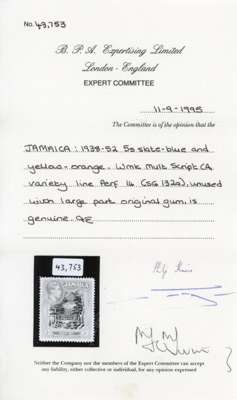 No. 43,753
B. P. A. Expertising Limited
London - England
EXPERT COMMITTEE
11-9-1995
The Committee is of the opinion that the
JAMAICA: 1938-52 5s slate-blue and
yellow-orange. Wmk Mult Script CA
variety line Perf 14 (SG 132a), unused
with large part original gum, is
genuine.
43,753
JAMAICA
Neither the Company nor the members of the Expert Committee can accept
any liability, either collective or individual, for any opinion expressed